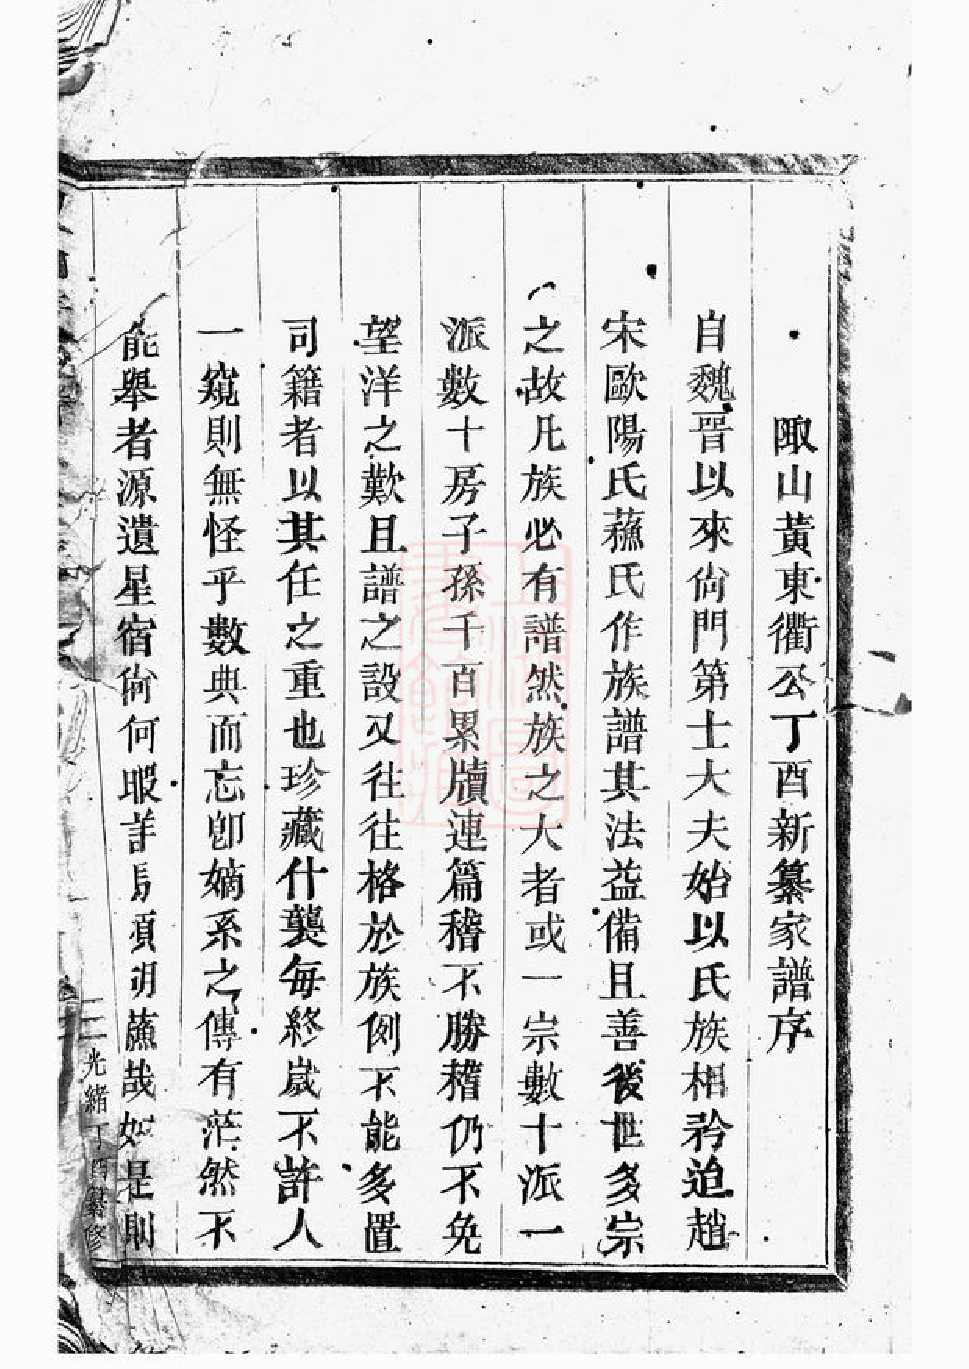 陬山黃東衢公丁酉新纂家譜序
自魏晉以來尙門第士大夫始以氏族相矜迨趙
宋歐陽氏蘓氏作族譜其法益備且善後世多宗
之故凡族必有譜然族之大者或一宗數十派一
派數十房子孫千百累牘連篇稽不勝稽仍不免
望洋之歎且譜之設又往往格於族例不能多置
司籍者以其任之重也珍藏什襲每終歲不許人
一窺則無怪乎數典而忘卽嫡系之傳有茫然不
能舉者源遺星宿尙何暇詳馬須胡蘓哉如是則
光緒丁酉纂修